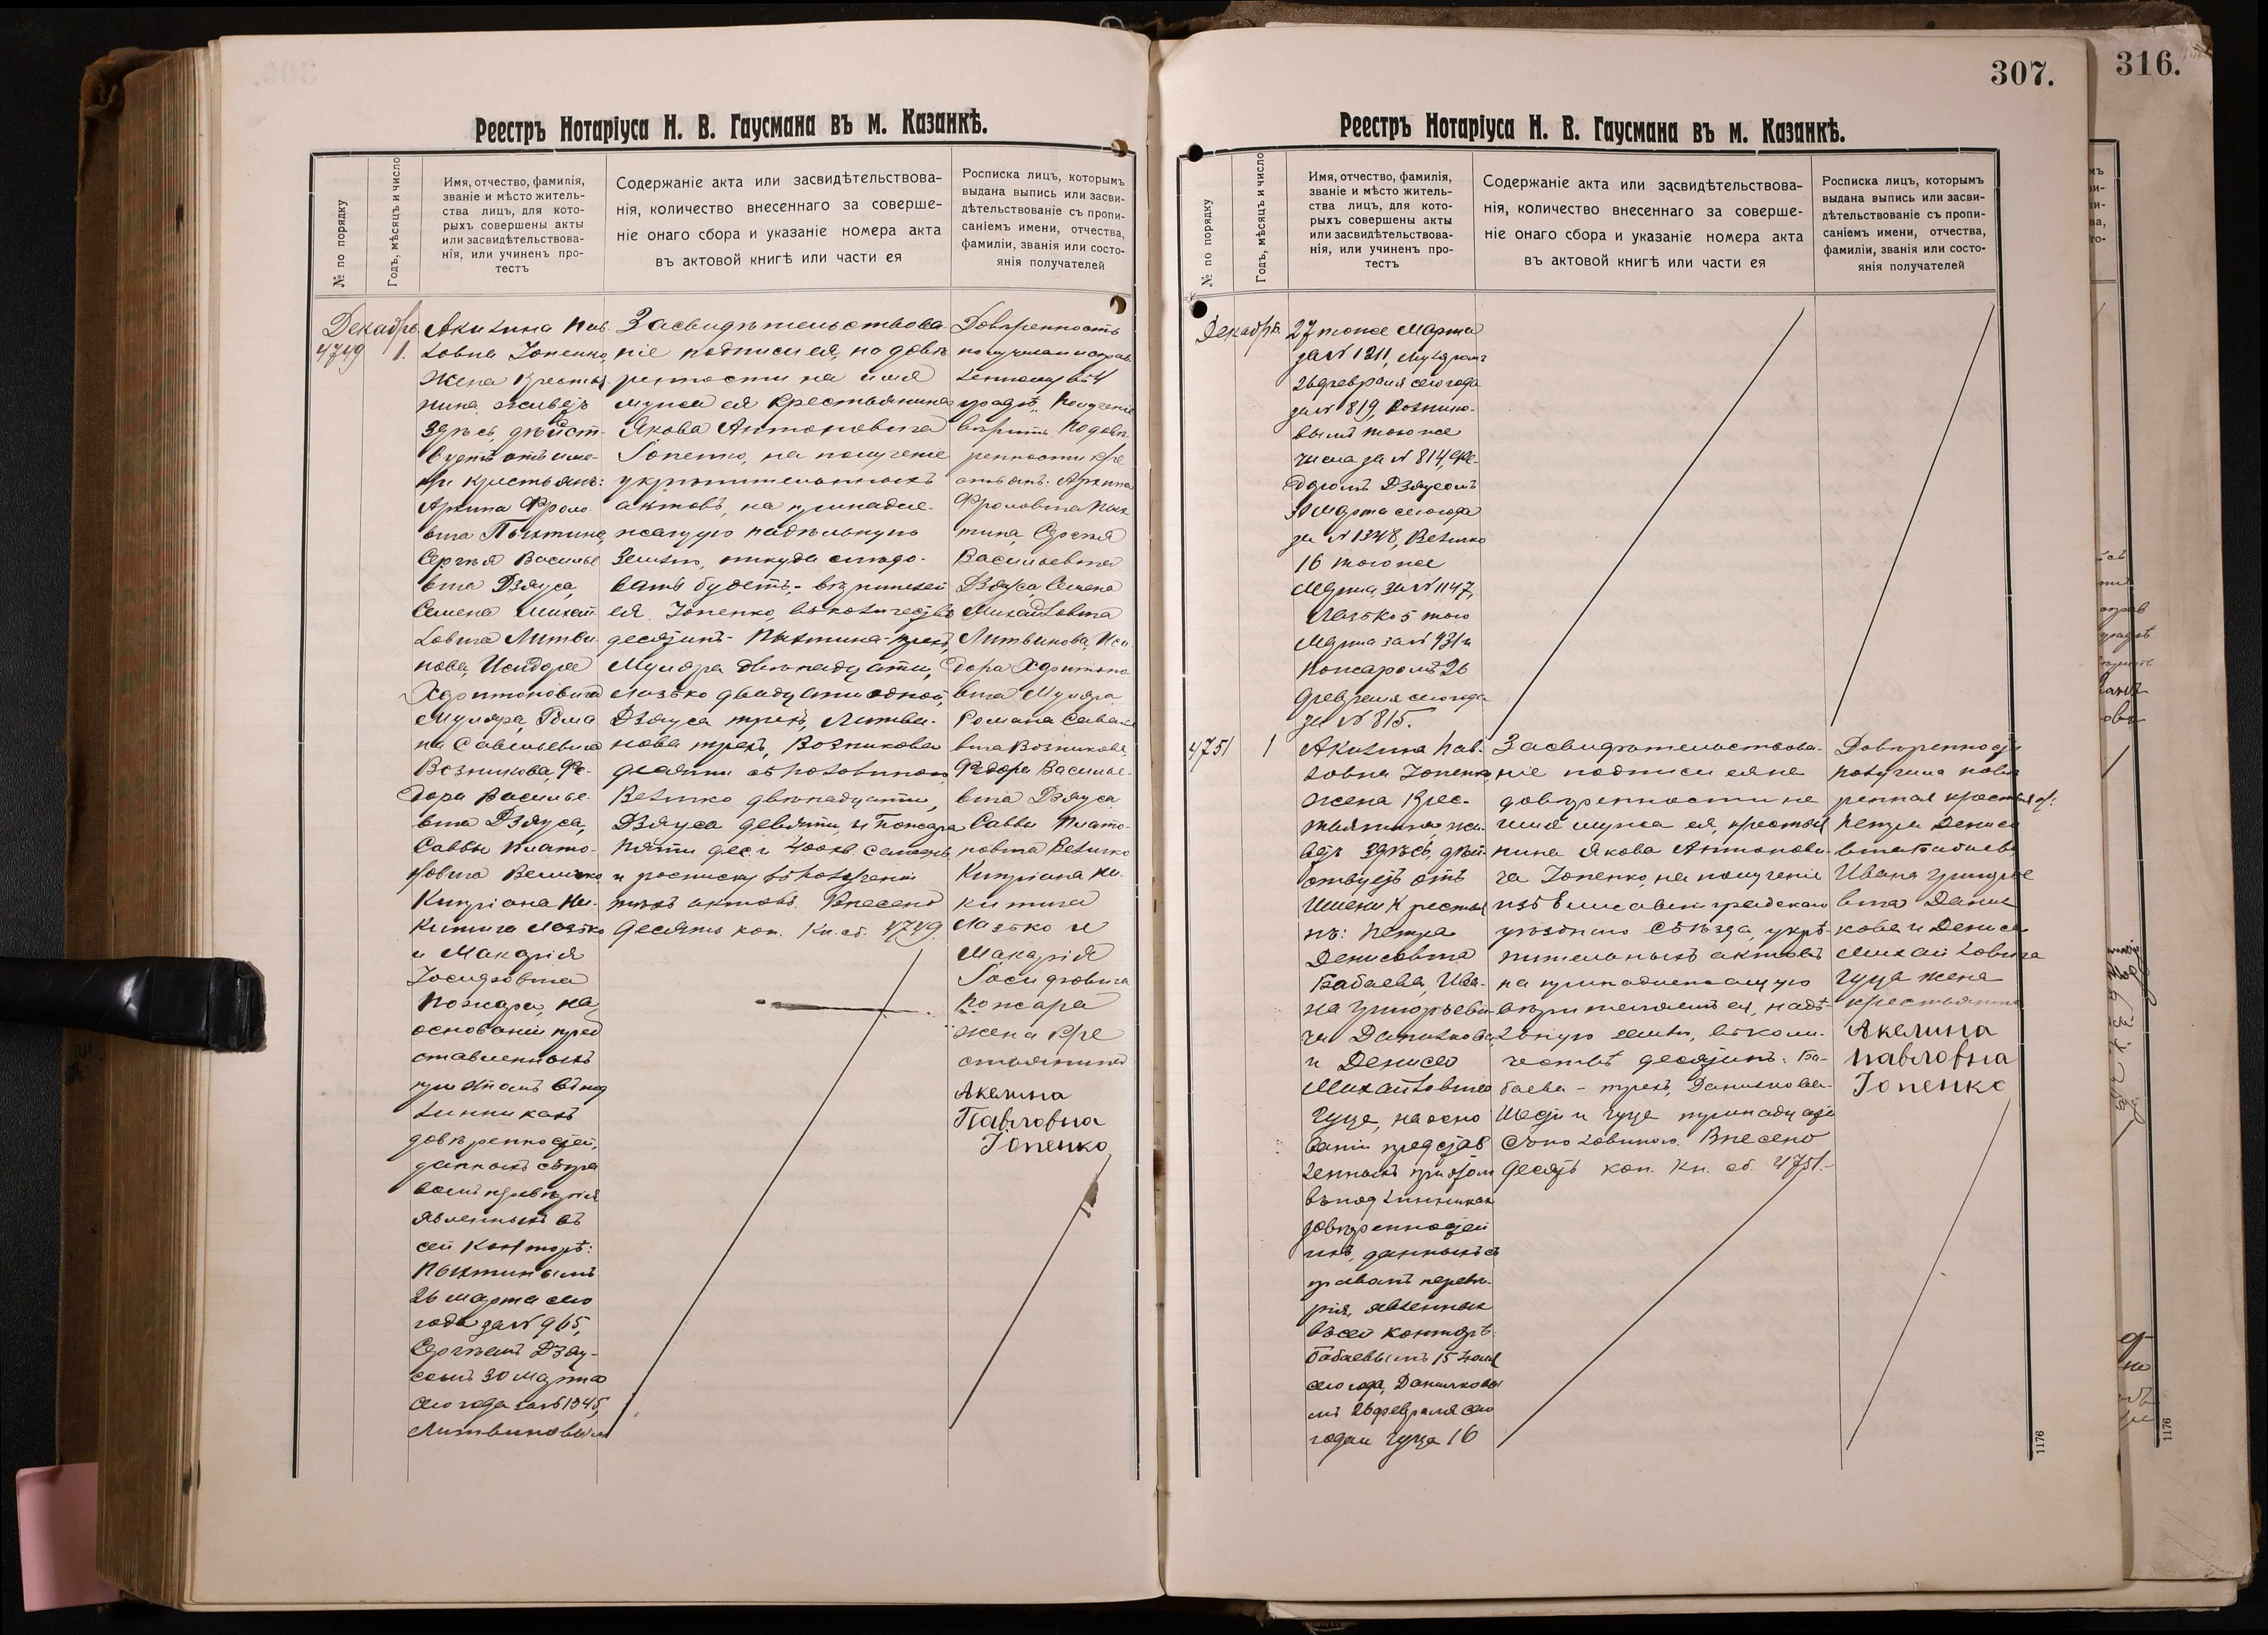 307.
316.
Реестръ Нотаріуса Н. В. Гаусмана въ м. Казанкѣ.
№ по порядку
Годъ, мѣсяцъ и число
Имя, отчество, фамилія,
званіе и мѣсто житель-
ства лицъ, для кото-
рыхъ совершены акты
или засвидѣтельствова-
нія, или учиненъ про-
тестъ
Содержаніе акта или засвидѣтельствова-
нія, количество внесеннаго за соверше-
ніе онаго сбора и указаніе номера акта
въ актовой книгѣ или части ея
Росписка лицъ, которымъ
выдана выпись или засви-
дѣтельствованіе съ пропи-
саніемъ имени, отчества,
фамиліи, званія или состо-
янія получателей
Декабрь
4749
1.
Акилина Пав-
ловна Іопенко,
жена крестья-
нина, живетъ
здѣсь, дѣйст-
вуетъ отъ име-
ни крестьянъ:
Архипа Фроло-
вича Пыхтина,
Сергѣя Василье
вича Дзяуса,
Семена Михай
ловича Литви-
нова, Исидора
Харитоновича
Муляра, Рома
на Савельевича
Возникова, Фе-
дора Василье-
вича Дзяуса,
Саввы Плато-
новича Величко
Кипріана Ни-
китича Лазько
и Макарія
Іосифовича
Пожара, на
основаніи пред
ставленныхъ
при этомъ въ под
линникахъ
довѣренностей,
данныхъ съ пра
вомъ перевѣрія
явленныхъ въ
сей конторѣ:
Пыхтинымъ
26 марта сего
года за № 965,
Сергѣемъ Дзяу-
сомъ 30 марта
сего года за № 1345,
Литвиновымъ
Засвидѣтельствова-
ніе подписи ея, на довѣ-
ренности на имя
мужа ея крестьянина
Якова Антоновича
Іопенко, на полученіе
укрѣпительныхъ
актовъ, на принадле-
жащую надѣльную
землю, откуда слѣдо-
вать будетъ,- вѣрителей
ея Іопенко, въ количествѣ
десятинъ - Пыхтина-трехъ,
Муляра двѣнадцати,
Лазько двадцати одной,
Дзяуса трехъ, Литви-
нова трехъ, Возникова
десяти съ половиною,
Величко двѣнадцати,
Дзяуса девяти и Пожара
пяти дес. и 400 кв. сажень
и росписку въ полученіи
тѣхъ актовъ. Внесено
десять коп. Кн. сб. 4749.
Довѣренность
Полученіе
вѣрить. По довѣ-
ренности кре
стьянъ: Архипа
Фроловича Пых
тина, Сергѣя
Васильевича
Дзяуса, Семена
Михайловича
Литвинова, Иси
дора Харитоно
вича Муляра,
Романа Савелье
вича Возникова,
Федора Василье-
вича Дзяуса
Саввы Плато-
новича Величко
Кипріана Ни-
китича
Лазько и
Макарія
Іосифовича
Пожара
жена кре
стьянина
Акелина
Павловна
Іопенко
Реестръ Нотаріуса Н. В. Гаусмана въ м. Казанкѣ.
№ по порядку
Годъ, мѣсяцъ и число
Имя, отчество, фамилія,
званіе и мѣсто житель-
ства лицъ, для кото-
рыхъ совершены акты
или засвидѣтельствова-
нія, или учиненъ про-
тестъ
Содержаніе акта или засвидѣтельствова-
нія, количество внесеннаго за соверше-
ніе онаго сбора и указаніе номера акта
въ актовой книгѣ или части ея
Росписка лицъ, которымъ
выдана выпись или засви-
дѣтельствованіе съ пропи-
саніемъ имени, отчества,
фамиліи, званія или состо-
янія получателей
Декабрь
27 того же Марта
за № 1211, Муляромъ
26 февраля сего года
за № 819, Вознико-
вымъ того же
числа за № 814, Фе-
доромъ Дзяусомъ
30 Марта сего года
за № 1348, Величко
16 того же
Марта за № 1147,
Лазько 5 того
Марта за № 931 и
Пожаромъ 26
февраля сего года
за № 815.
4751
1
Акилина Пав-
ловна Іопенко
жена крес-
тьянина жи-
ветъ здѣсь, дѣй-
ствуетъ отъ
имени крестья
нъ: Петра
Денисовича
Бабаева, Ива-
на Григорьеви-
ча Данилкова
и Дениса
Михайловича
Гуца, на осно
ваніи представ
ленныхъ при этом
въ подлинникахъ
довѣренностей
ихъ, данныхъ съ
правомъ перевѣ-
рія, явленныхъ
въ сей конторѣ:
Бабаевымъ 15 Іюля
сего года, Данилковы
мъ 26 февраля сего
года и Гуца 16
Засвидѣтельствова-
ніе подписи ея на
довѣренности на
имя мужа ея, крестья
нина Якова Антонови-
ча Іопенко, на полученіе
изъ Елисаветградскаго
уѣзднаго Съѣзда, укрѣ-
пительныхъ актовъ
на принадлежащую
вѣрителямъ ея, надѣ-
льную землю, въ коли-
чествѣ десятинъ: Ба-
баева - трехъ, Данилкова
шести и Гуца тринадцати
съ половиною. Внесено
десять коп. Кн. сб. 4751.-
Довѣренность
получила повѣ
ренная крестьянъ:
Петра Денисо
вича Бабаева
Ивана Григорье
вича Данил
кова и Дениса
Михайловича
Гуца жена
крестьянина
Акелина
Павловна
Іопенко
1176
1176